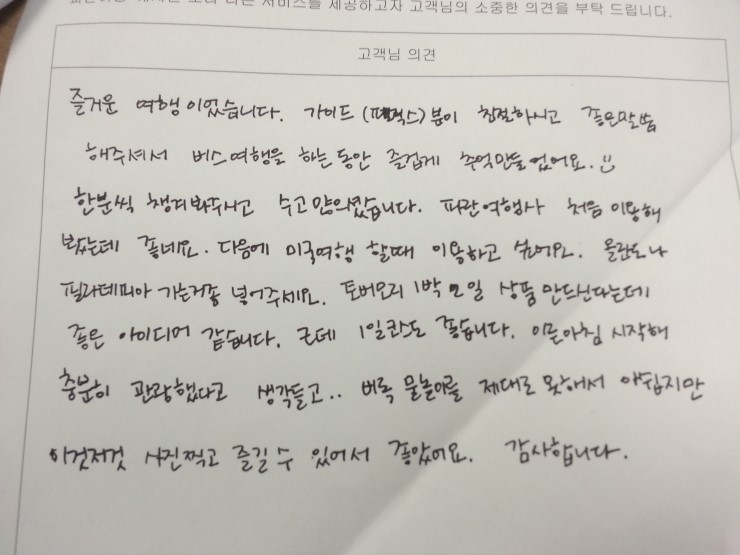 서비스를 제공하고자 고객님의 소중한 의견을 부탁 드립니다.
고객님 의견
즐거운 여행이었습니다. 가이드 ( )분이 친절하시고 좋은말씀
해주셔서 버스여행을 하는동안 즐겁게 추억만들었어요.
한분씩 챙겨봐주시고 수고 많으셨습니다. 파란여행사 처음 이용해
봤는데 좋네요. 다음에 미국여행 할때 이용하고 싶어요. 올란도나
필라데피아 가는거좀 넣어주세요. 토버모리 1박 2일 상품 만드신다는데
좋은 아이디어 같습니다. 근데 1일코스도 좋습니다. 이른아침 시작해
충분히 관광했다고 생각들고.. 비록 물놀이를 제대로 못해서 아쉽지만
이것저것 사진찍고 즐길수 있어서 좋았어요. 감사합니다.